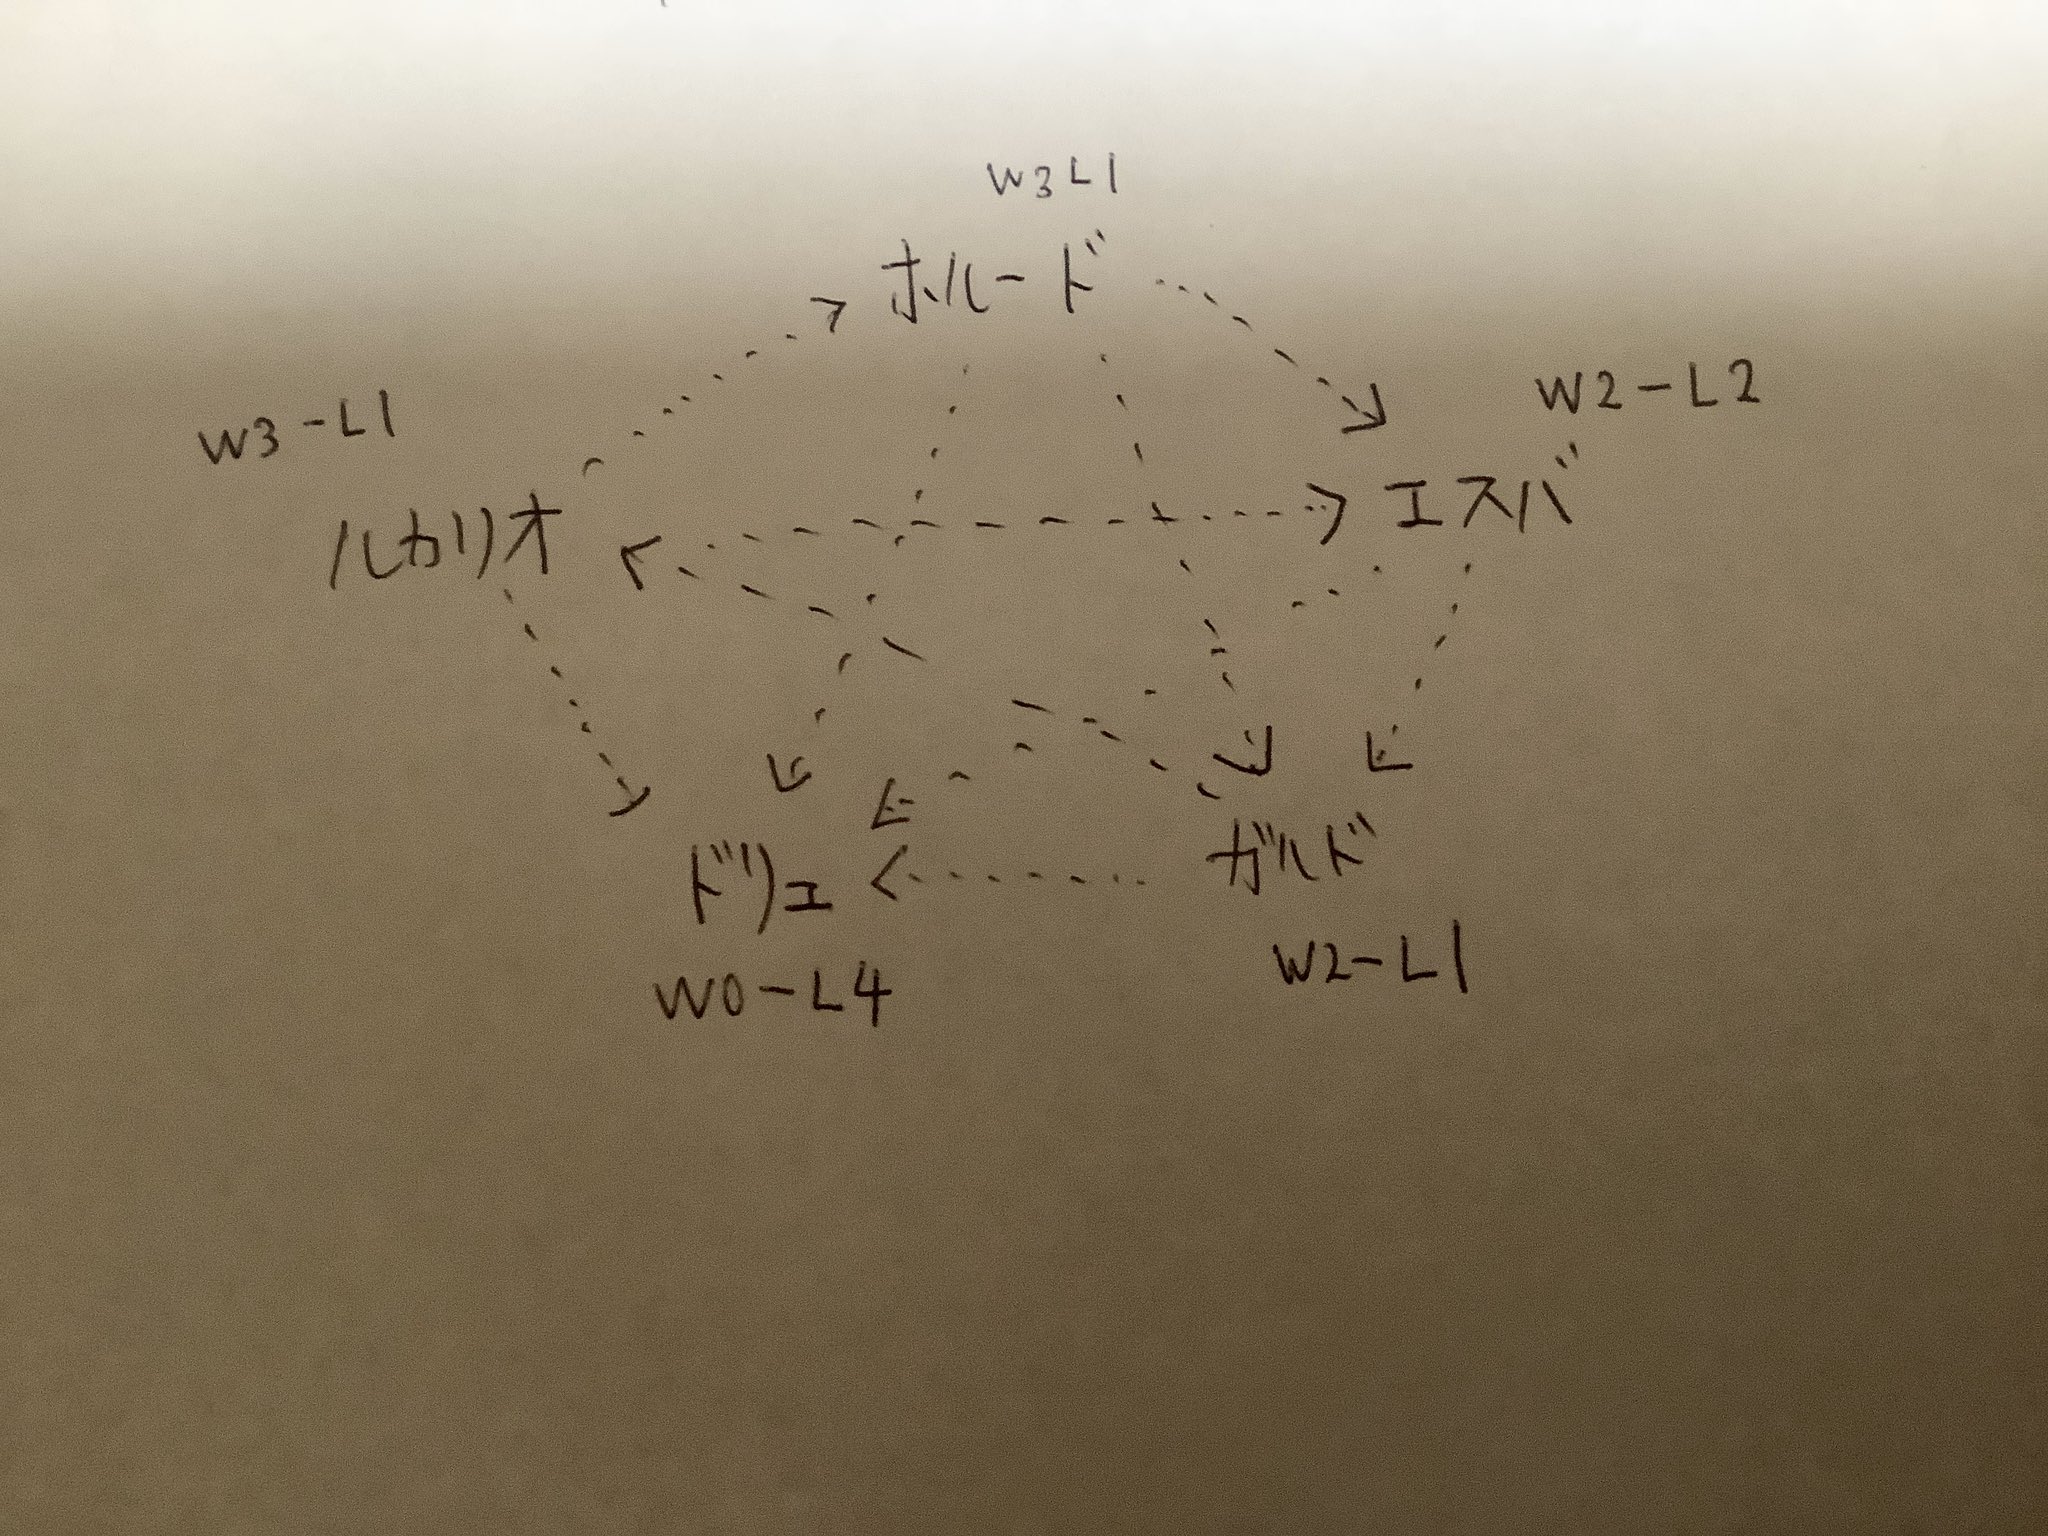 W3L1
ホルード
W3-L1
ルカリオ
W2-L2
エスバ
ドリュ
W0-L4
ガルド
W2-L1